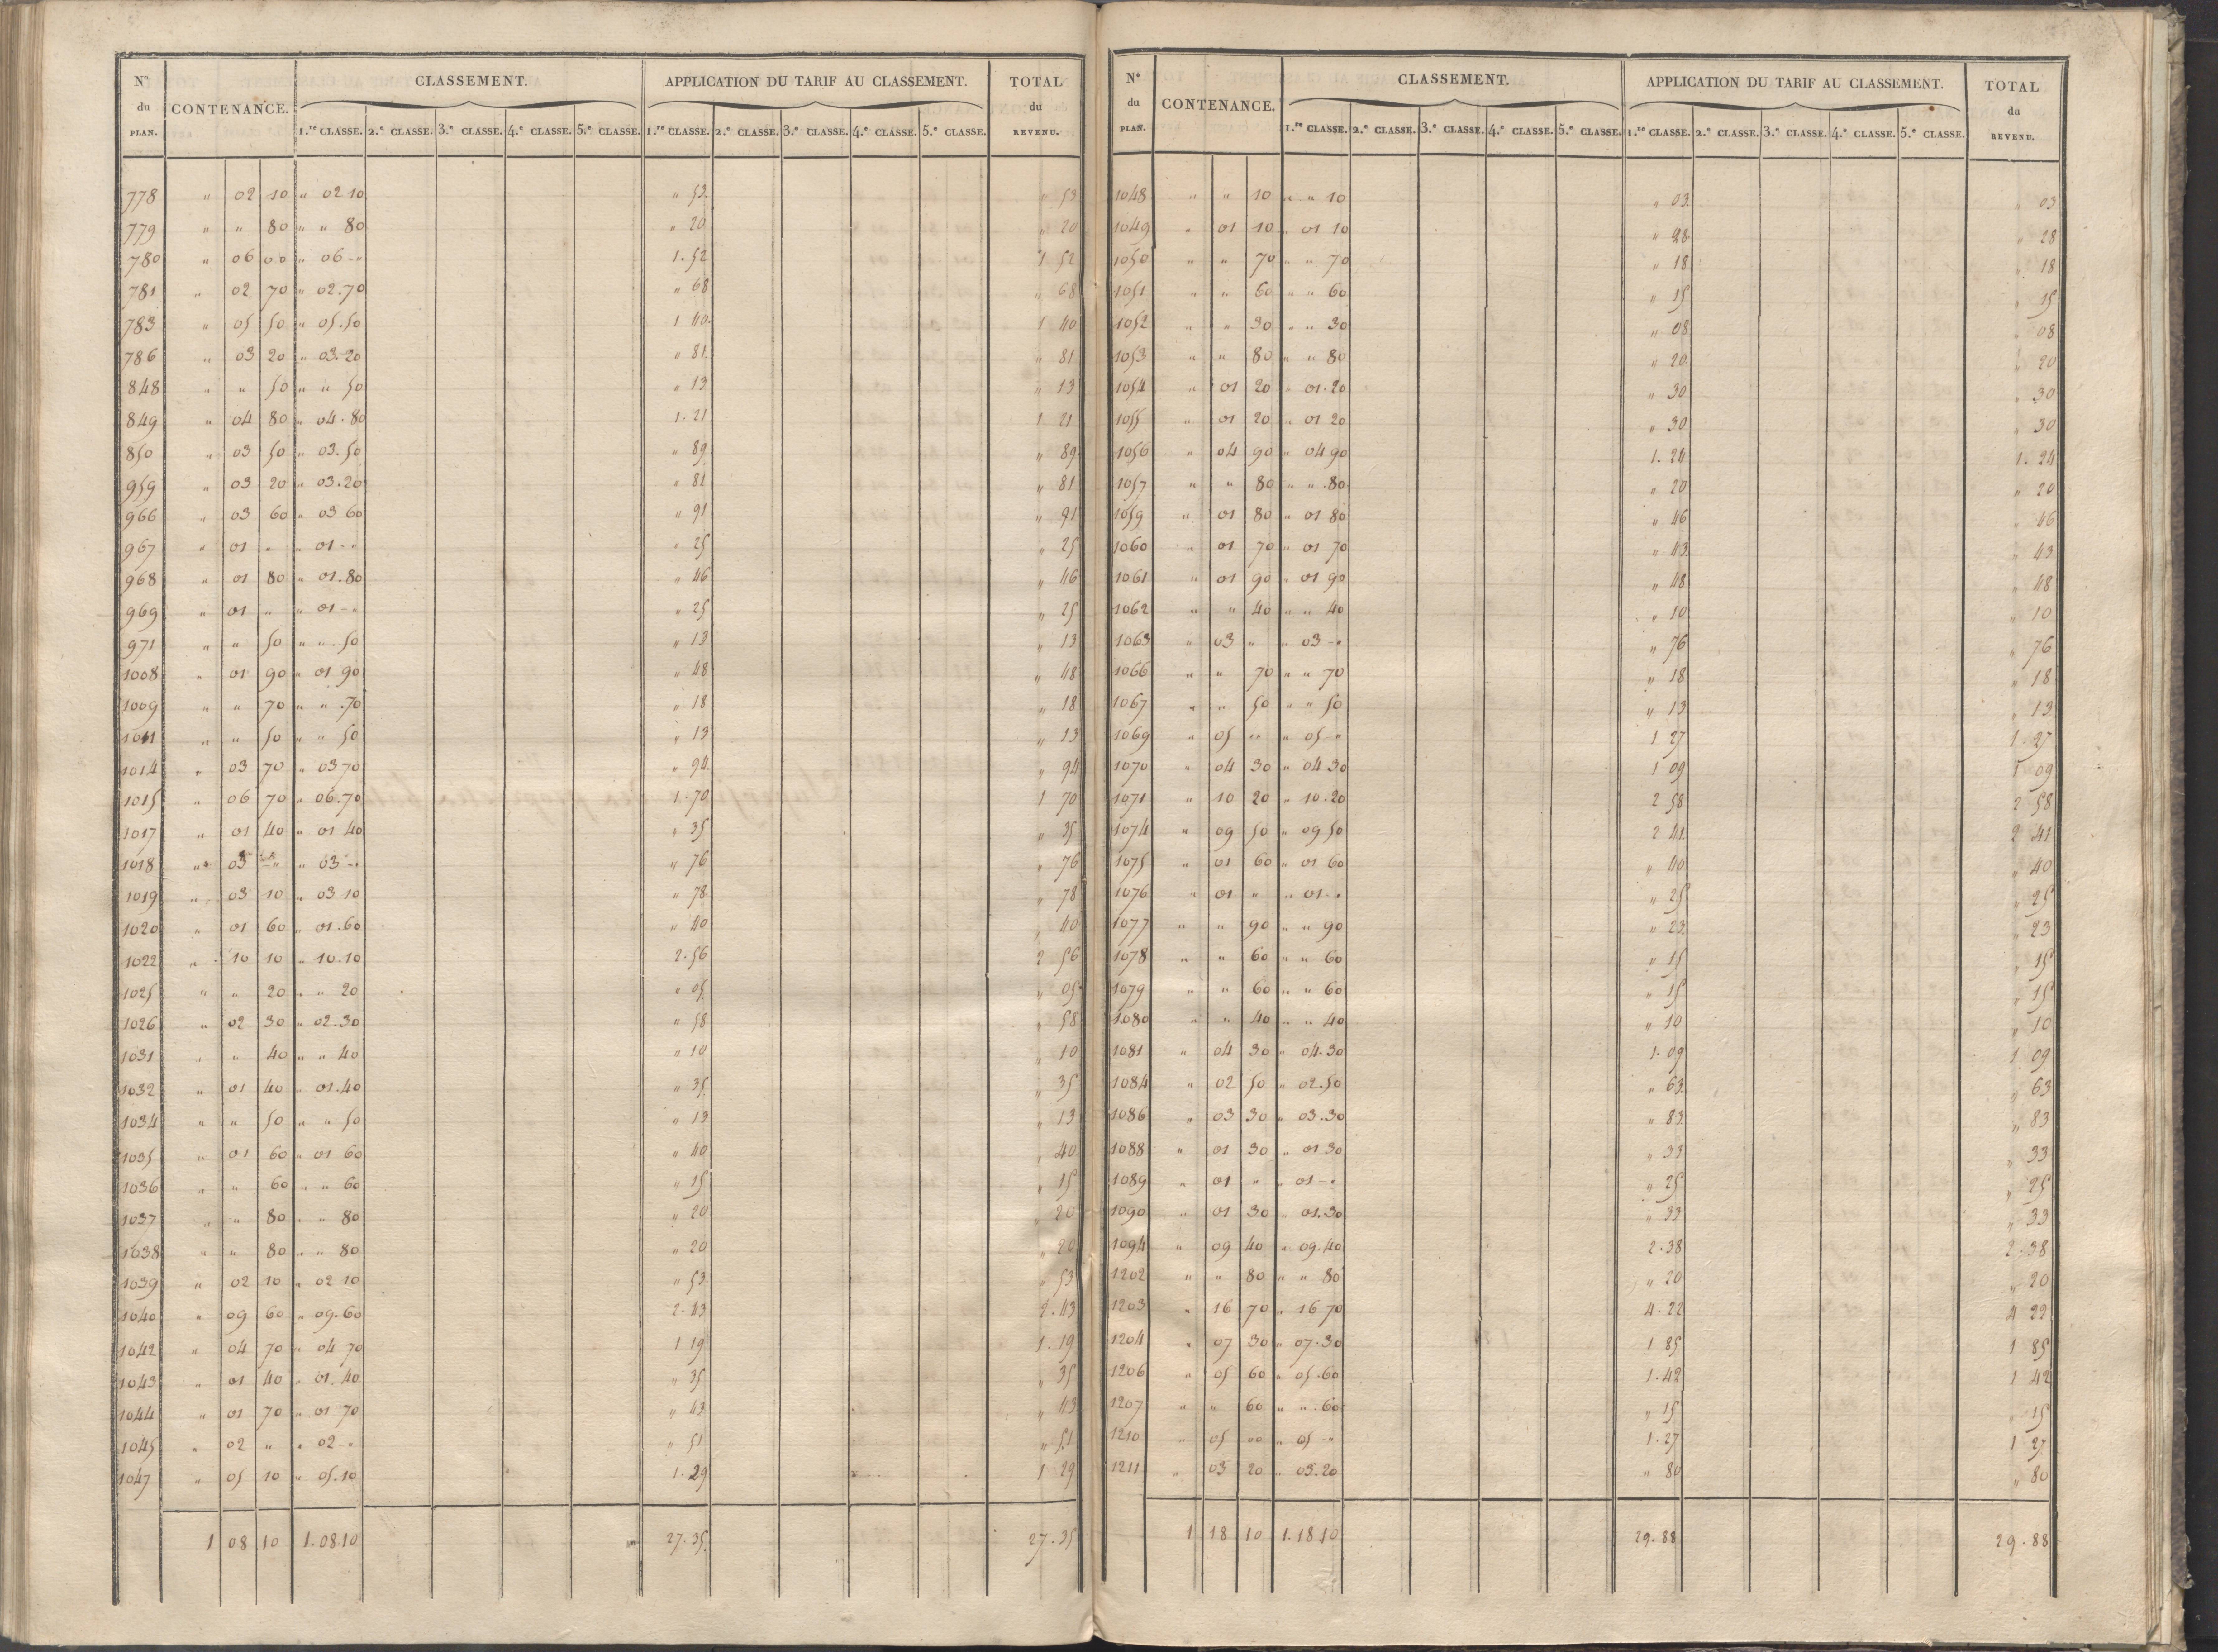 N.° du PLAN. CONTENANCE. CLASSEMENT. APPLICATION DU TARIF AU CLASSEMENT. TOTAL du REVENU.
1.re CLASSE. 2.e CLASSE. 3.e CLASSE. 4.e CLASSE. 5.e CLASSE. 1.re CLASSE. 2.e CLASSE. 3.e CLASSE. 4.e CLASSE. 5.e CLASSE.
778 " 02 10 " 02 10 " 53 " 53
779 " " 80 " " 80 " 20 " 20
780 " 06 00 " 06 - " 1. 52 1 52
781 " 02 70 " 02.70 " 68 " 68
783 " 05 50 " 05.50 1 40 1 40
786 " 03 20 " 03.20 " 81 " 81
848 " " 50 " " 50 " 13 " 13
849 " 04 80 " 04.80 1.21 1 21
850 " 03 50 " 03.50 " 89 " 89
959 " 03 20 " 03.20 " 81 " 81
966 " 03 60 " 03 60 " 91 " 91
967 " 01 " " 01 - " " 25 " 25
968 " 01 80 " 01.80 " 46 " 46
969 " 01 " " 01 - " " 25 " 25
971 " " 50 " " 50 " 13 " 13
1008 " 01 90 " 01 90 " 48 " 48
1009 " " 70 " " .70 " 18 " 18
1011 " " 50 " " 50 " 13 " 13
1014 " 03 70 " 03 70 " 94 " 94
1015 " 06 70 " 06.70 1.70 1 70
1017 " 01 40 " 01 40 " 35 " 35
1018 " 03 - " " 03 - " " 76 " 76
1019 " 03 10 " 03 10 " 78 " 78
1020 " 01 60 " 01.60 " 40 " 40
1022 " 10 10 " 10.10 2.56 2 56
1025 " " 20 " " 20 " 05 " 05
1026 " 02 30 " 02.30 " 58 " 58
1031 " " 40 " " 40 " 10 " 10
1032 " 01 40 " 01.40 " 35 " 35
1034 " " 50 " " 50 " 13 " 13
1035 " 01 60 " 01 60 " 40 " 40
1036 " " 60 " " 60 " 15 " 15
1037 " " 80 " " 80 " 20 " 20
1038 " " 80 " " 80 " 20 " 20
1039 " 02 10 " 02 10 " 53 " 53
1040 " 09 60 " 09.60 2.43 2.43
1042 " 04 70 " 04 70 1 19 1.19
1043 " 01 40 " 01.40 " 35 " 35
1044 " 01 70 " 01 70 " 43 " 43
1045 " 02 " " 02 " " 51 " 51
1047 " 05 10 " 05.10 1.29 1 29
1 08 10 1.08.10 27.35 27.35
N.° du PLAN. CONTENANCE. CLASSEMENT. APPLICATION DU TARIF AU CLASSEMENT. TOTAL du REVENU.
1.re CLASSE. 2.e CLASSE. 3.e CLASSE. 4.e CLASSE. 5.e CLASSE. 1.re CLASSE. 2.e CLASSE. 3.e CLASSE. 4.e CLASSE. 5.e CLASSE.
1048 " " 10 " " 10 " 03 " 03
1049 " 01 10 " 01 10 " 28 " 28
1050 " " 70 " " 70 " 18 " 18
1051 " " 60 " " 60 " 15 " 15
1052 " " 30 " " 30 " 08 " 08
1053 " " 80 " " 80 " 20 " 20
1054 " 01 20 " 01.20 " 30 " 30
1055 " 01 20 " 01 20 " 30 " 30
1056 " 04 90 " 04 90 1.24 1.24
1057 " " 80 " " .80 " 20 " 20
1059 " 01 80 " 01 80 " 46 " 46
1060 " 01 70 " 01 70 " 43 " 43
1061 " 01 90 " 01 90 " 48 " 48
1062 " " 40 " " 40 " 10 " 10
1063 " 03 " " 03 - " " 76 " 76
1066 " " 70 " " 70 " 18 " 18
1067 " " 50 " " 50 " 13 " 13
1069 " 05 " " 05 " 1 27 1.27
1070 " 04 30 " 04.30 1 09 1 09
1071 " 10 20 " 10.20 2 58 2 58
1074 " 09 50 " 09 50 2 41 2 41
1075 " 01 60 " 01 60 " 40 " 40
1076 " 01 " " 01 - " " 25 " 25
1077 " " 90 " " 90 " 23 " 23
1078 " " 60 " " 60 " 15 " 15
1079 " " 60 " " 60 " 15 " 15
1080 " " 40 " " 40 " 10 " 10
1081 " 04 30 " 04.30 1.09 1 09
1084 " 02 50 " 02.50 " 63 " 63
1086 " 03 30 " 03.30 " 83 " 83
1088 " 01 30 " 01 30 " 33 " 33
1089 " 01 " " 01 - " " 25 " 25
1090 " 01 30 " 01.30 " 33 " 33
1094 " 09 40 " 09.40 2.38 2.38
1202 " " 80 " " 80 " 20 " 20
1203 " 16 70 " 16 70 4.22 4 22
1204 " 07 30 " 07.30 1 85 1 85
1206 " 05 60 " 05.60 1.42 1 42
1207 " " 60 " " .60 " 15 " 15
1210 " 05 00 " 05 - " 1.27 1 27
1211 " 03 20 " 03.20 " 80 " 80
1 18 10 1.18 10 29.88 29.88